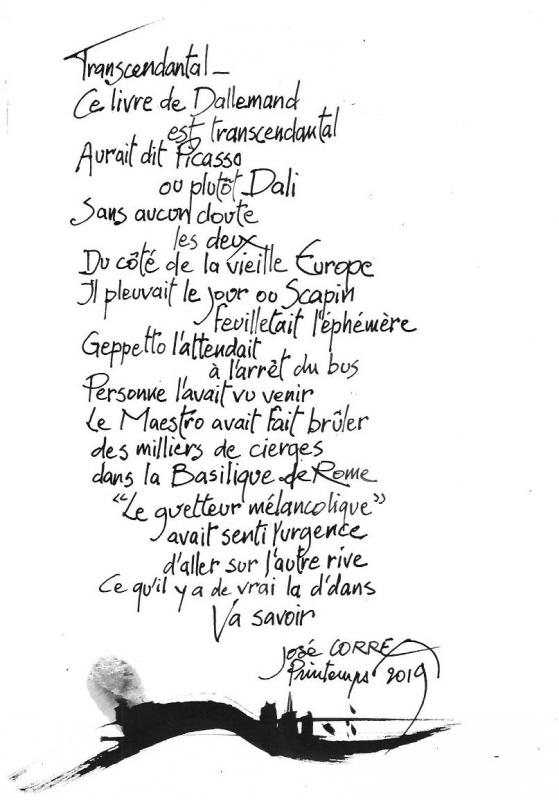 Transcendantal_
Ce livre de Dallemand
est transcendantal
Aurait dit Picasso
ou plutôt Dali
Sans aucun doute
les deux
Du côté de la vieille Europe
Il pleuvait le jour ou Scapin
feuilletait l'éphémère
Geppetto l'attendait
à l'arrêt du bus
Personne l'avait vu venir
Le Maestro avait fait brûler
des milliers de cierges
dans la Basilique de Rome
"Le guetteur mélancolique"
avait senti l'urgence
d'aller sur l'autre rive
Ce qu'il y a de vrai la d'dans
Va savoir
José CORREA
Printemps 2019